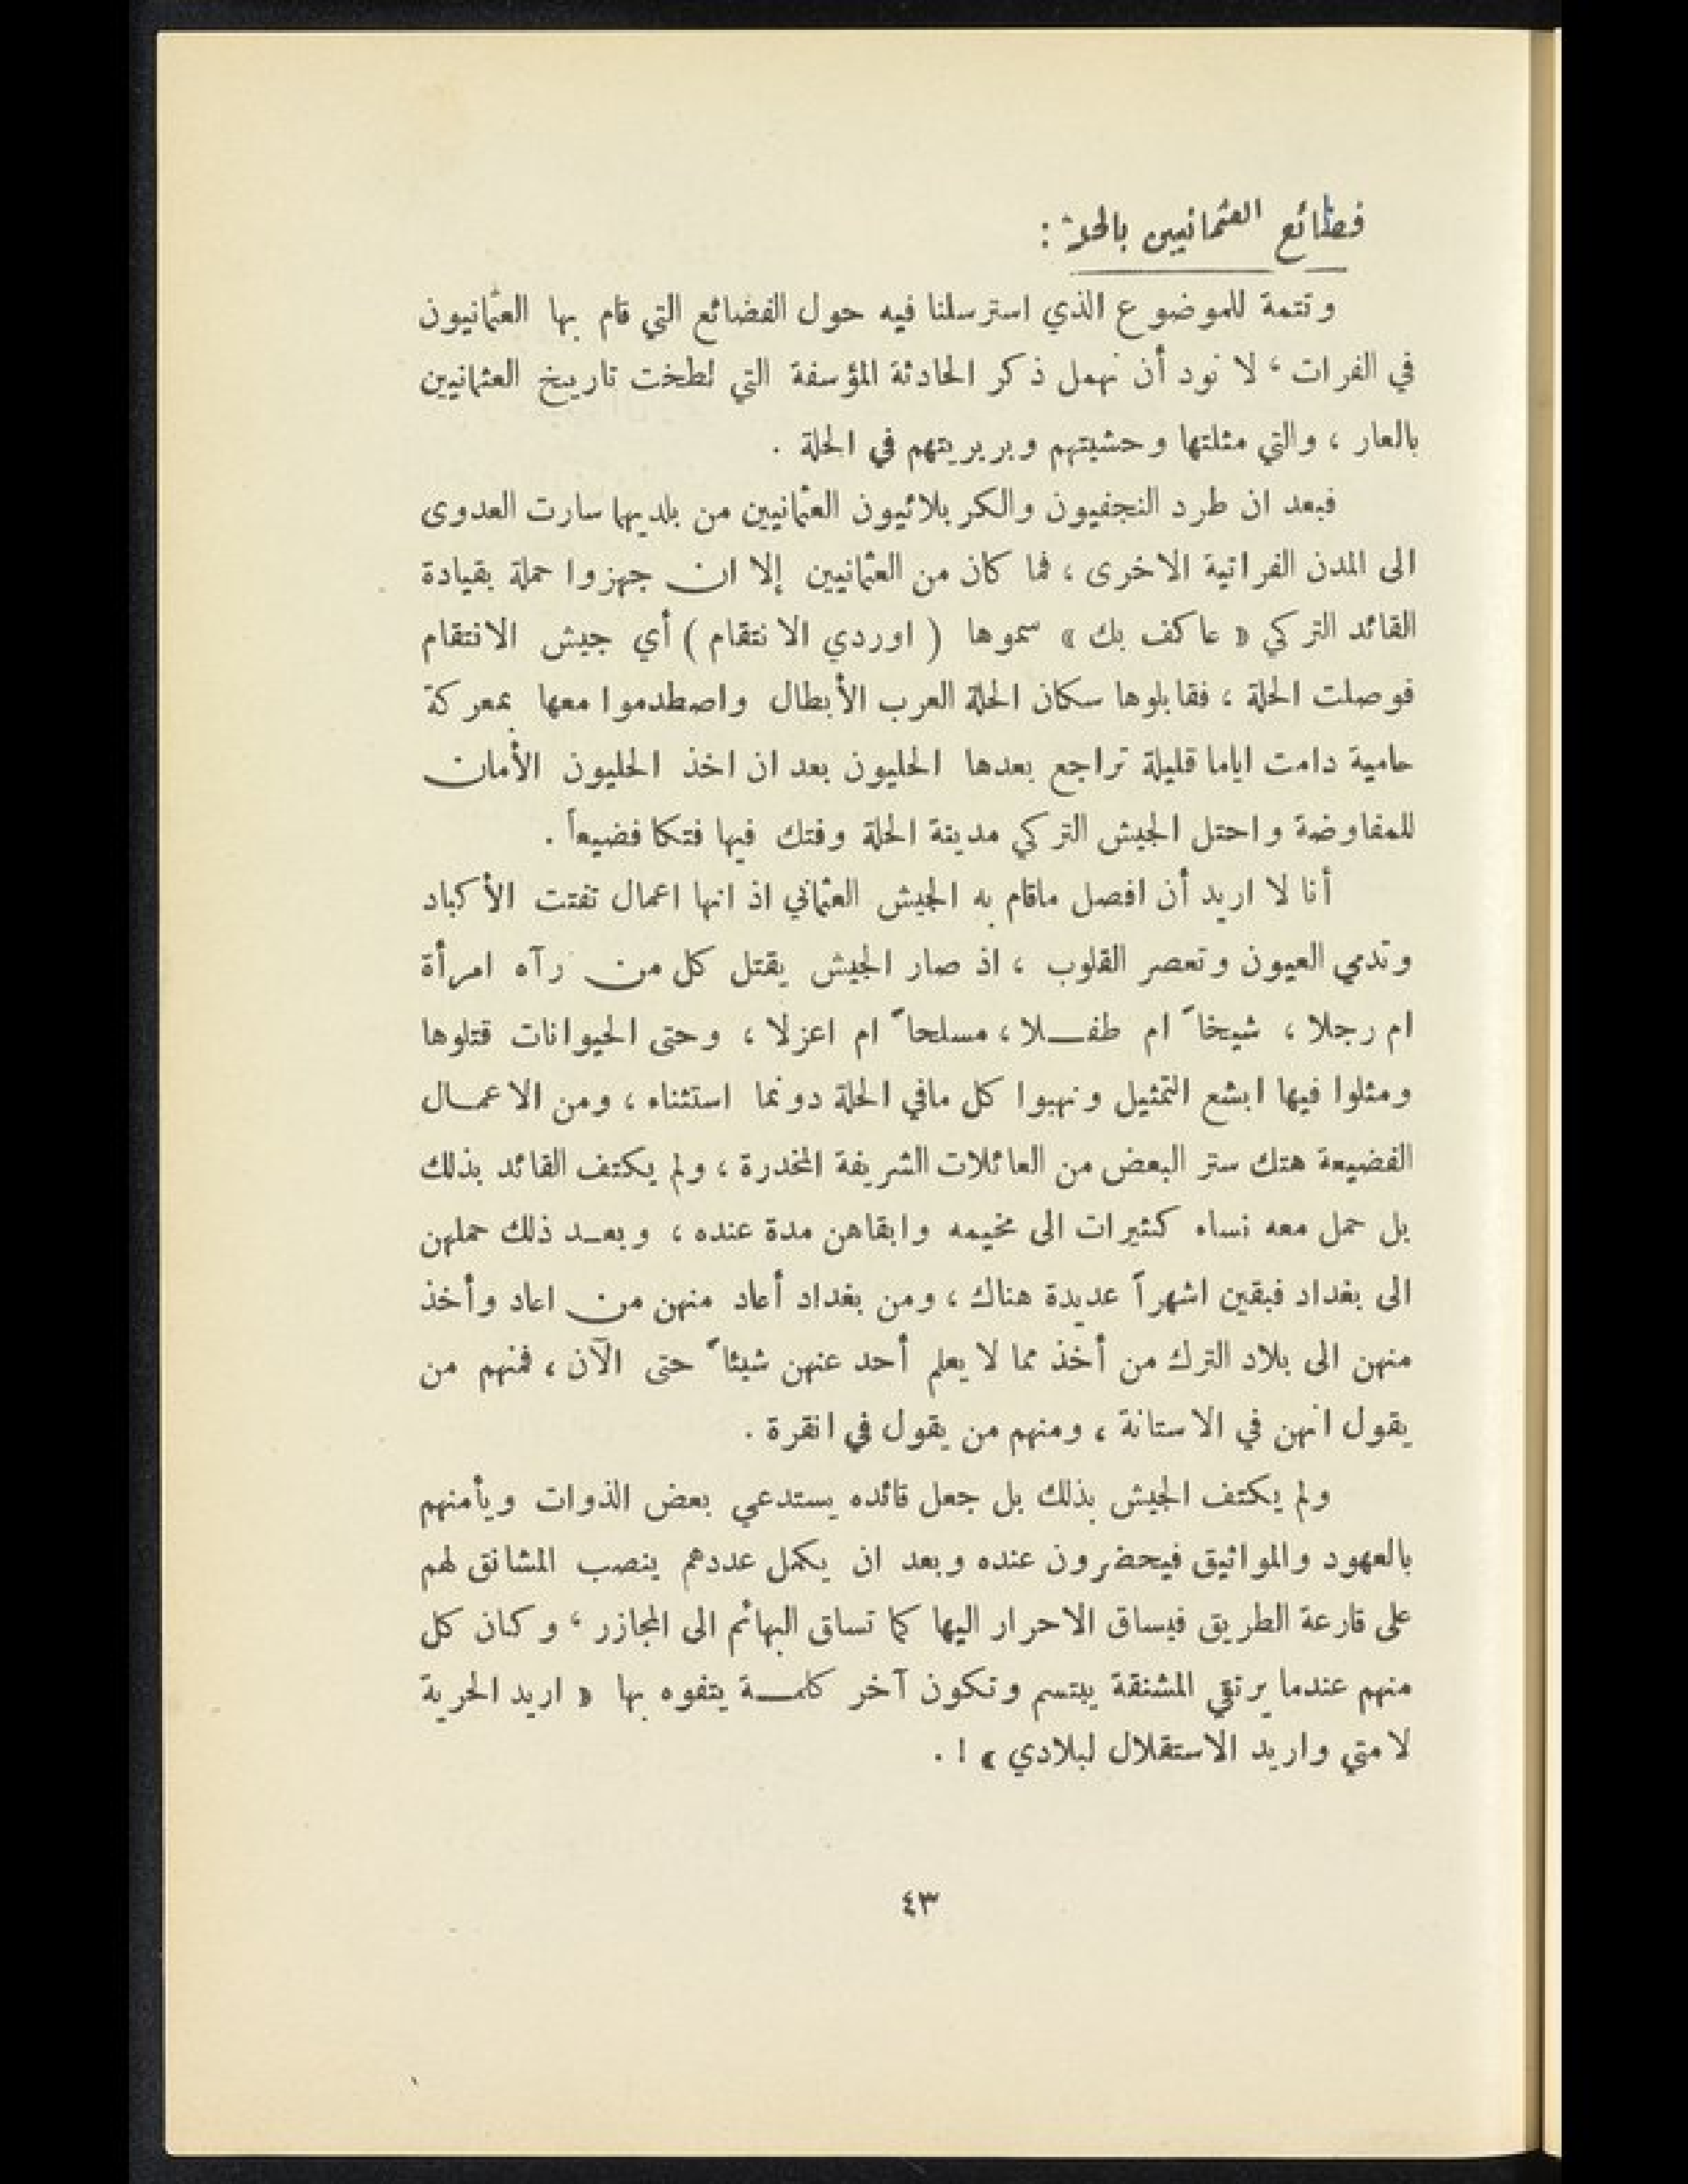 فظائع العثمانيين بالحلة :
وتتمة للموضوع الذي استرسلنا فيه حول الفضائع التي قام بها العثمانيون
في الفرات ، لا نود أن نهمل ذكر الحادثة المؤسفة التي لطخت تاريخ العثمانيين
بالعار ، والتي مثلتها وحشيتهم وبربريتهم في الحلة .
فبعد ان طرد النجفيون والكربلائيون العثمانيين من بلديهما سارت العدوى
الى المدن الفراتية الاخرى ، فما كان من العثمانيين إلا ان جهزوا حملة بقيادة
القائد التركي « عاكف بك » سموها ( اوردي الانتقام ) أي جيش الانتقام
فوصلت الحلة ، فقابلوها سكان الحلة العرب الأبطال واصطدموا معها بمعركة
حامية دامت اياما قليلة تراجع بعدها الحليون بعد ان اخذ الحليون الأمان
للمفاوضة واحتل الجيش التركي مدينة الحلة وفتك فيها فتكا فضيعاً .
أنا لا اريد أن افصل ماقام به الجيش العثماني اذ انها اعمال تفتت الأكباد
وتدمي العيون وتعصر القلوب ، اذ صار الجيش يقتل كل من رآه امرأة
ام رجلا ، شيخاً ام طفـلا ، مسلحاً ام اعزلا ، وحتى الحيوانات قتلوها
ومثلوا فيها ابشع التمثيل ونهبوا كل مافي الحلة دونما استثناء ، ومن الاعمـال
الفضيعة هتك ستر البعض من العائلات الشريفة المخدرة ، ولم يكتف القائد بذلك
بل حمل معه نساء كثيرات الى مخيمه وابقاهن مدة عنده ، وبعـد ذلك حملهن
الى بغداد فبقين اشهراً عديدة هناك ، ومن بغداد أعاد منهن من اعاد وأخذ
منهن الى بلاد الترك من أخذ مما لا يعلم أحد عنهن شيئاً حتى الآن ، فمنهم من
يقول انهن في الاستانة ، ومنهم من يقول في انقرة .
ولم يكتف الجيش بذلك بل جعل قائده يستدعي بعض الذوات ويأمنهم
بالعهود والمواثيق فيحضرون عنده وبعد ان يكمل عددهم ينصب المشانق لهم
على قارعة الطريق فيساق الاحرار اليها كما تساق البهائم الى المجازر ، وكان كل
منهم عندما يرتقي المشنقة يبتسم وتكون آخر كلمـة يتفوه بها « اريد الحرية
لامتي واريد الاستقلال لبلادي » ! .
٤٣